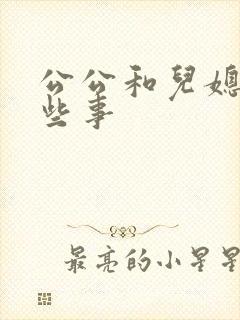 公公和兒媳
些事
最亮的小星星